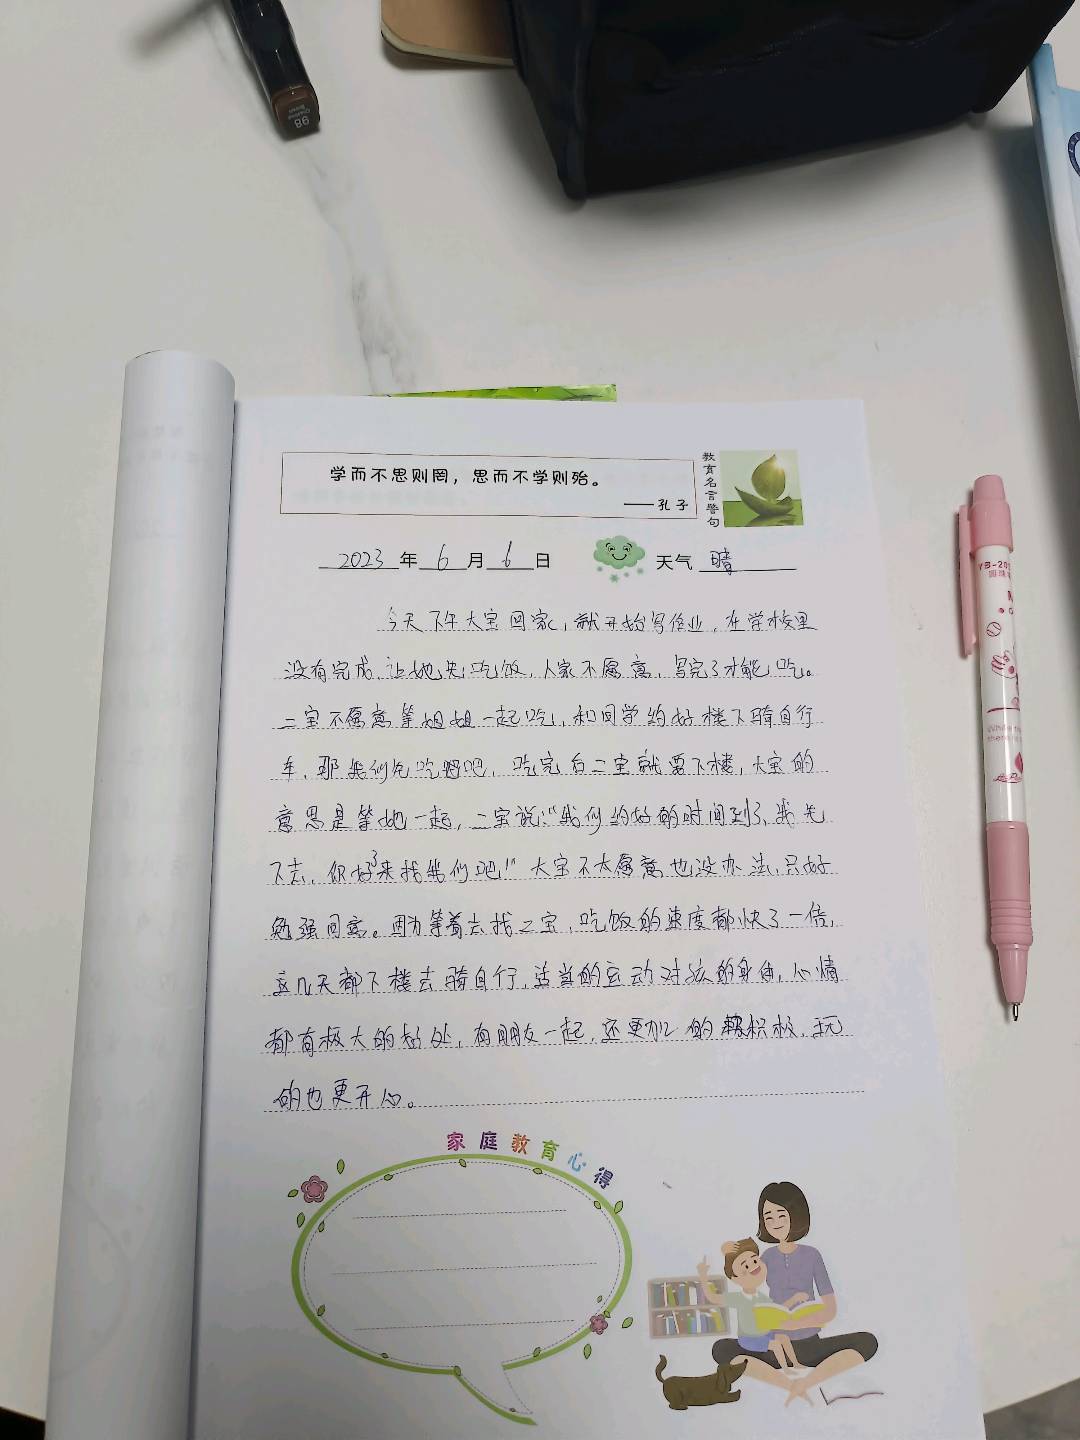 98
学而不思则罔，思而不学则殆。
——孔子
教育名言警句
2023年6月6日 天气 晴
今天下午大宝回家，就开始写作业，在学校里
没有完成，让她先吃饭，人家不愿意，写完了才能吃。
二宝不愿意等姐姐一起吃，和同学约好楼下骑自行
车，那我们先吃吧，吃完后二宝就要下楼，大宝的
意思是等她一起，二宝说："我们约好的时间到了，我先
下去，你好了来找我们吧！"大宝不太愿意也没办法，只好
勉强同意。因为等着去找二宝，吃饭的速度都快了一倍，
这几天都下楼去骑自行，适当的运动对孩的身体，心情
都有极大的好处，有朋友一起，还更加的积极，玩
的也更开心。
家庭教育心得